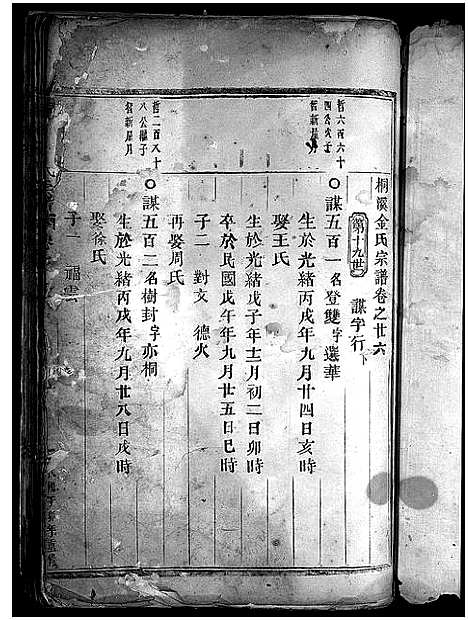 桐溪金氏宗譜卷之廿六
第十九世 謀字行下
哲六百六十
四公次子
○謀五百一名登雙字選華
生於光緒丙戌年九月廿四日亥時
娶王氏
生於光緒戊子年十二月初二日卯時
卒於民國戊午年九月廿五日巳時
子二 對文 德火
再娶周氏
哲二百八十
八公繼子
○謀五百二名樹封字亦桐
生於光緒丙戌年九月廿八日戌時
娶徐氏
子一